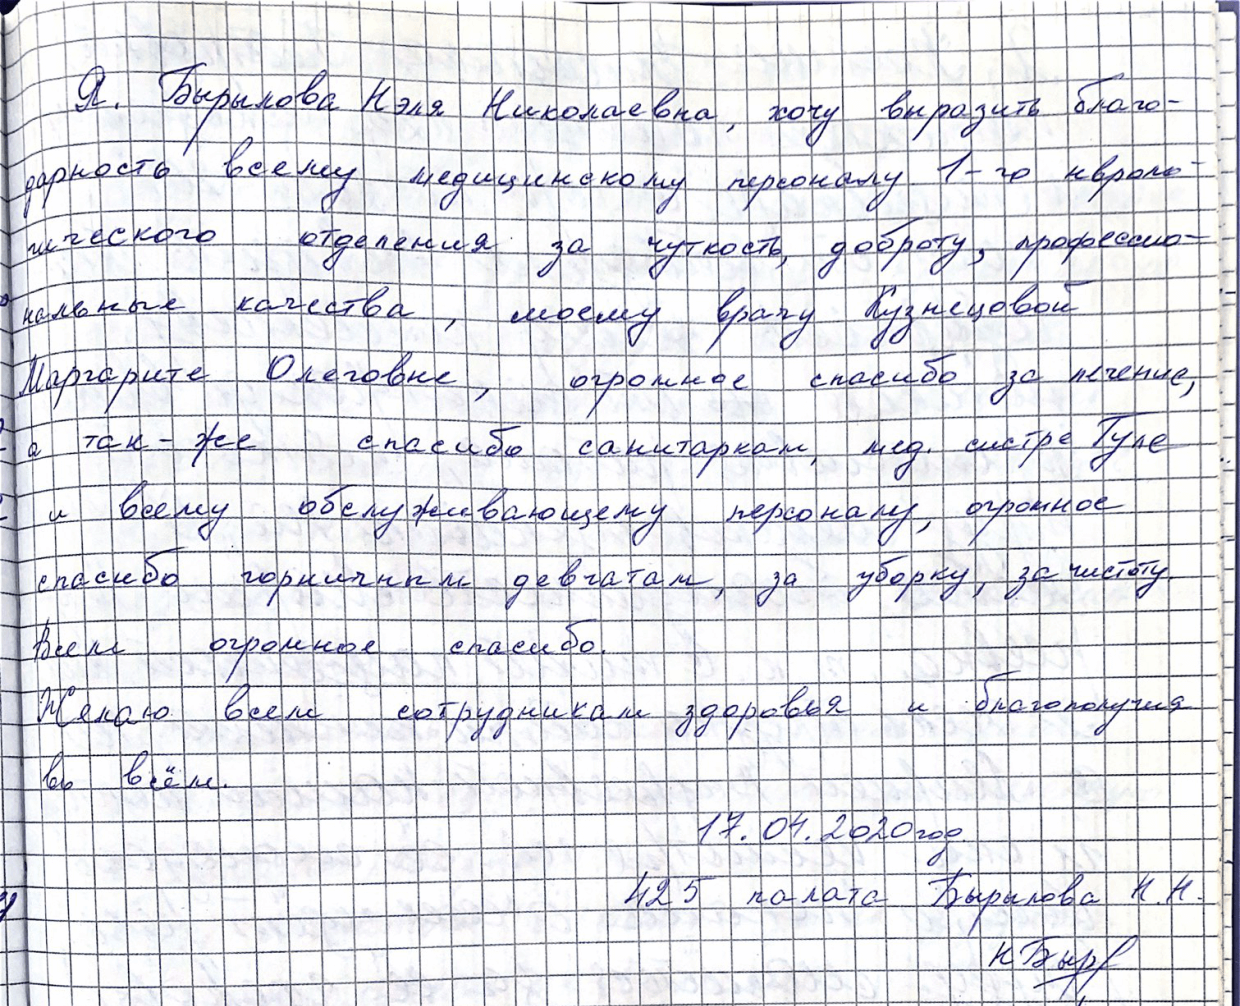 Я. Бырылова Нэля Николаевна, хочу выразить благо-
дарность всему медицинскому персоналу 1-го невроло-
гического отделения за чуткость, доброту, профессио-
нальные качества, моему врачу Кузнецовой
Маргарите Олеговне, огромное спасибо за лечение,
а так-же спасибо санитаркам, мед. систре Гуле
и всему обслуживающему персоналу, огромное
спасибо горничным девчатам, за уборку, за чистоту.
Всем огромное спасибо.
Желаю всем сотрудникам здоровья и благополучия
во всём.
17.04.2020год
425 палата Бырылова Н.Н.